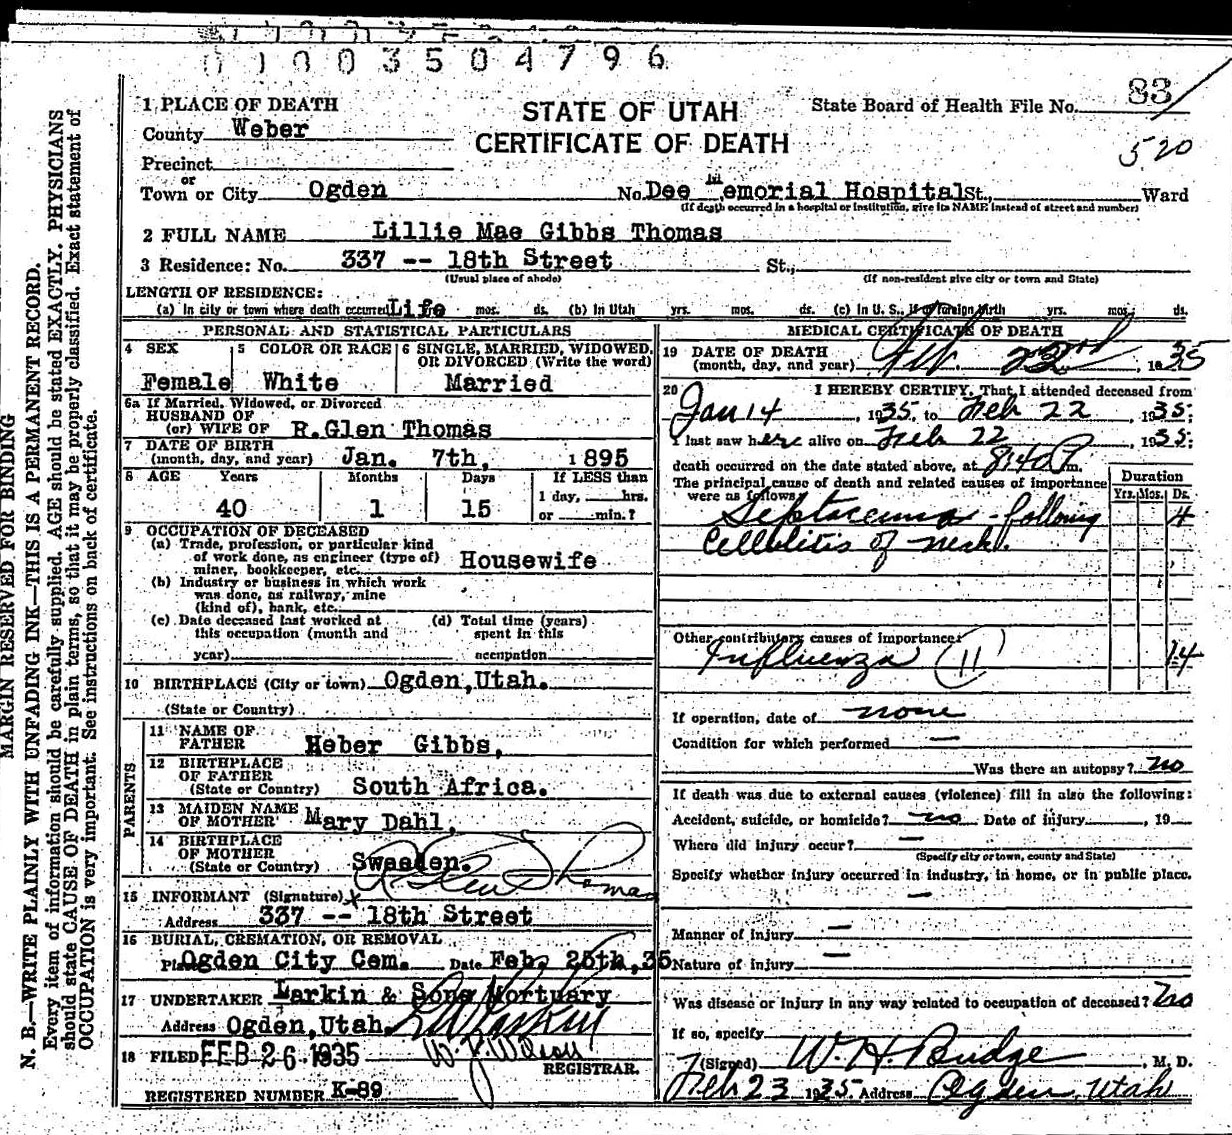 01003504796
MARGIN RESERVED FOR BINDING
N. B.—WRITE PLAINLY WITH UNFADING INK—THIS IS A PERMANENT RECORD.
Every item of information should be carefully supplied. AGE should be stated EXACTLY. PHYSICIANS
should state CAUSE OF DEATH in plain terms, so that it may be properly classified. Exact statement of
OCCUPATION is very important. See instructions on back of certificate.
STATE OF UTAH
CERTIFICATE OF DEATH
State Board of Health File No. 83
520
1 PLACE OF DEATH
County Weber
Precinct
or
Town or City Ogden No. Dee Memorial Hospital St., Ward
(If death occurred in a hospital or institution, give its NAME instead of street and number)
2 FULL NAME Lillie Mae Gibbs Thomas
3 Residence: No. 337 -- 18th Street St.,
(Usual place of abode) (If non-resident give city or town and State)
LENGTH OF RESIDENCE:
(a) In city or town where death occurred Life mos. ds. (b) In Utah yrs. mos. ds. (c) In U. S., if of foreign birth yrs. mos. ds.
PERSONAL AND STATISTICAL PARTICULARS
4 SEX
Female
5 COLOR OR RACE
White
6 SINGLE, MARRIED, WIDOWED,
OR DIVORCED (Write the word)
Married
6a If Married, Widowed, or Divorced
HUSBAND OF
(or) WIFE OF R.Glen Thomas
7 DATE OF BIRTH
(month, day, and year) Jan. 7th, 1895
8 AGE Years Months Days If LESS than
1 day, hrs.
40 1 15 or min.?
9 OCCUPATION OF DECEASED
(a) Trade, profession, or particular kind
of work done, as engineer (type of)
miner, bookkeeper, etc. Housewife
(b) Industry or business in which work
was done, as railway, mine
(kind of), bank, etc.
(c) Date deceased last worked at
this occupation (month and
year)
(d) Total time (years)
spent in this
occupation
10 BIRTHPLACE (City or town) Ogden,Utah.
(State or Country)
PARENTS
11 NAME OF
FATHER Heber Gibbs,
12 BIRTHPLACE
OF FATHER
(State or Country) South Africa.
13 MAIDEN NAME
OF MOTHER Mary Dahl,
14 BIRTHPLACE
OF MOTHER
(State or Country) Sweeden.
15 INFORMANT (Signature) x R Glen Thomas
Address 337 -- 18th Street
16 BURIAL, CREMATION, OR REMOVAL
Place Ogden City Cem. Date Feb, 25th,35
17 UNDERTAKER Larkin & Sons Mortuary
Address Ogden,Utah.
18 FILED FEB 26 1935 W. J. Wilson
REGISTRAR.
REGISTERED NUMBER K-89
MEDICAL CERTIFICATE OF DEATH
19 DATE OF DEATH
(month, day, and year) Feb. 22nd, 1935
20 I HEREBY CERTIFY, That I attended deceased from
Jan 14, 1935. to Feb 22 1935.
I last saw her alive on Feb 22, 1935.
death occurred on the date stated above, at 8:40 P m.
The principal cause of death and related causes of importance
were as follows: Duration
Yrs. Mos. Ds.
Septacemia - following 4
Cellulitis of neck.
Other contributary causes of importance:
Influenza (11) 14
If operation, date of none
Condition for which performed —
Was there an autopsy? no
If death was due to external causes (violence) fill in also the following:
Accident, suicide, or homicide? no Date of injury , 19
Where did injury occur? —
(Specify city or town, county and State)
Specify whether injury occurred in industry, in home, or in public place.
—
Manner of injury —
Nature of injury —
Was disease or injury in any way related to occupation of deceased? no
If so, specify
(Signed) W. H. Budge, M. D.
Feb 23 1935. Address Ogden, Utah